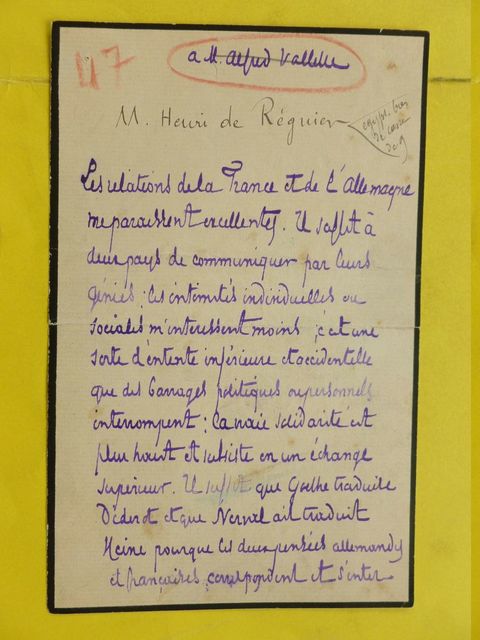 47
à M. Alfred Vallette
M. Henri de Régnier
Les relations de la France et de l'Allemagne
me paraissent excellentes. Il suffit à
deux pays de communiquer par leurs
génies : les intimités individuelles ou
sociales m'intéressent moins ; c'est une
sorte d'entente inférieure et accidentelle
que des barrages politiques ou personnels
interrompent ; la vraie solidarité est
plus haut et subsiste en un échange
supérieur. Il suffit que Goethe traduise
Diderot et que Nerval ait traduit
Heine pour que les deux pensées allemandes
et françaises correspondent et s'inter-